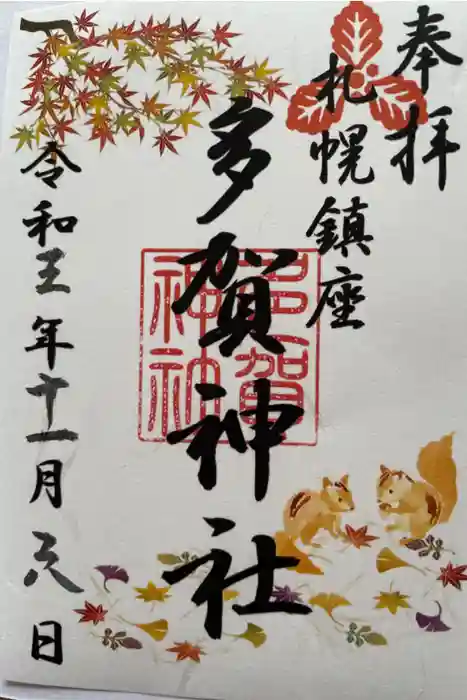 奉拝
札幌鎮座
多賀神社
多賀
神社
令和五年十一月六日